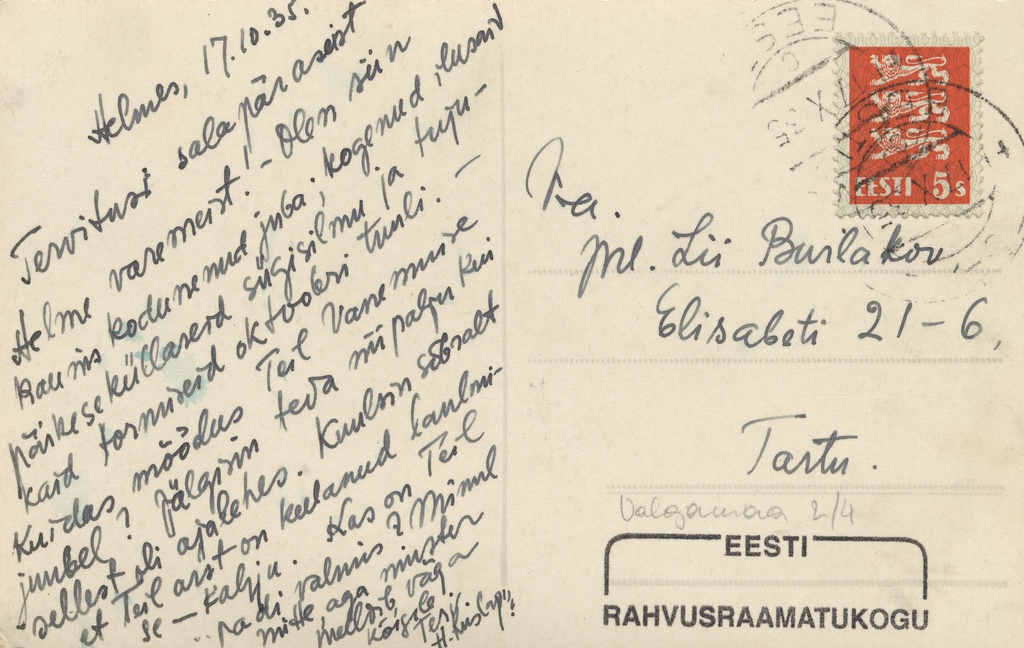 Helmes, 17.10.35.
Tervitusi salapäraseist
Helme varemeist! - Olen siin
kaunis kodunenud juba; kogenud ilusaid
päikeseküllaseid sügisilmu ja tuju-
kaid tormiseid oktoobri tuuli. -
Kuidas möödus Teil Vanemuise
juubel? Jälgisin teda nii palju kui
sellest oli ajalehes. Kuulsin sõbralt
et Teil arst on keelanud laulmi-
se - kahju. Kas on Teil
padi valmis? Minul
mitte aga muster
meeldib väga
kõigile
Terv.
Pra.
prl. Lii Burlakov,
Elisabeti 21-6,
Tartu.
Valgamaa 2/4
EESTI
RAHVUSRAAMATUKOGU
EESTI 5s